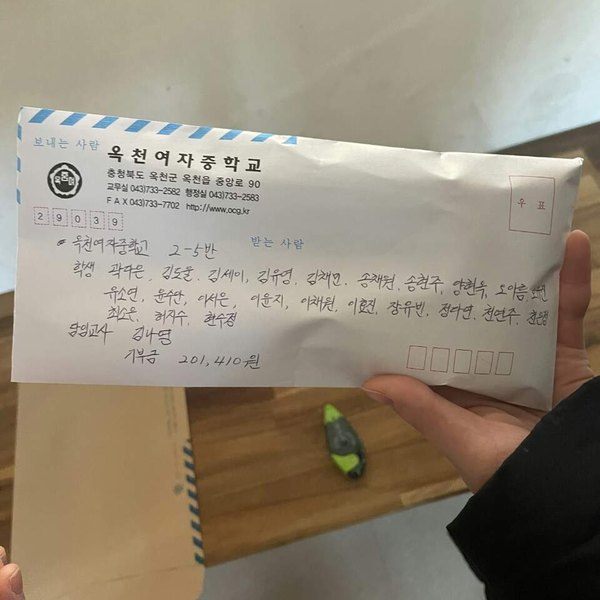 보내는 사람
옥천여자중학교
충청북도 옥천군 옥천읍 중앙로 90
교무실 043)733-2582 행정실 043)733-2583
FAX 043)733-7702 http://www.ocg.kr
29039
우표
받는 사람
옥천여자중학교 2-5반
학생 곽다은, 김도율, 김세이, 김유영, 김채민, 송채원, 송현주, 양현옥, 오아름,
유소연, 윤수산, 이서은, 이윤지, 이채원, 이효진, 장유빈, 정다연, 천연주,
최소은, 허지수, 현수정
담임교사 김나영
기부금 201,410원